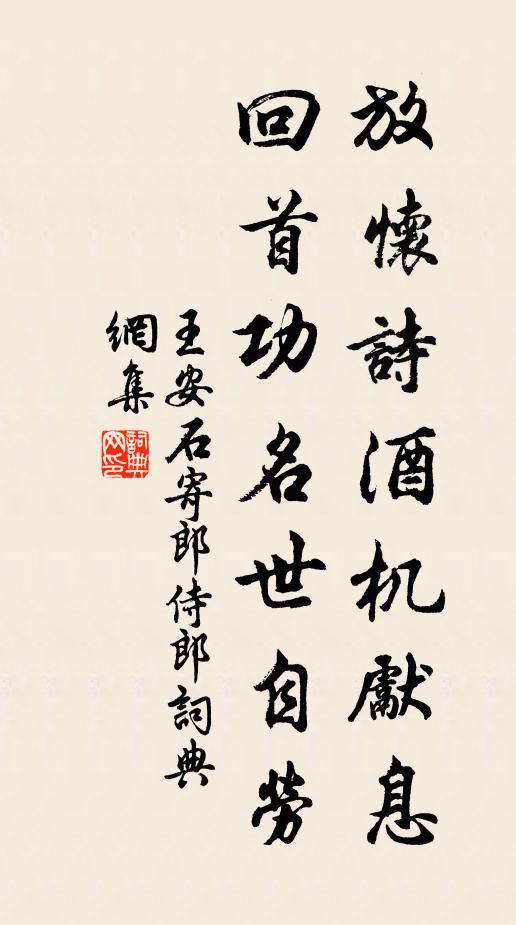 放懷詩酒机獻息
回首功名世自勞
王安石寄郎侍郎詞典
網集
詞典
网印